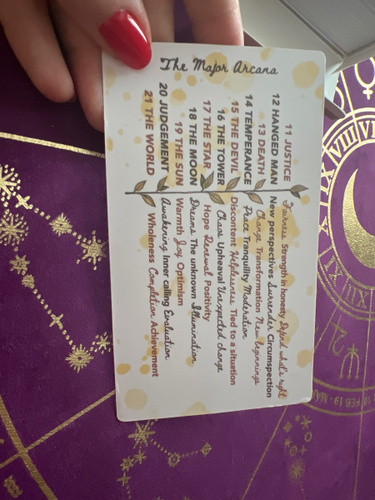 The Major Arcana
11 JUSTICE Fairness Strength in honesty Defend what's right
12 HANGED MAN New perspectives Surrender Circumspection
13 DEATH Change Transformation New beginnings
14 TEMPERANCE Peace Tranquility Moderation
15 THE DEVIL Discontent Helplessness Tied to a situation
16 THE TOWER Chaos Upheaval Unexpected change
17 THE STAR Hope Renewal Positivity
18 THE MOON Dreams The unknown Illumination
19 THE SUN Warmth Joy Optimism
20 JUDGEMENT Awakening Inner calling Evaluation
21 THE WORLD Wholeness Completion Achievement
VII VIII IX
18 FEB 19 - MA